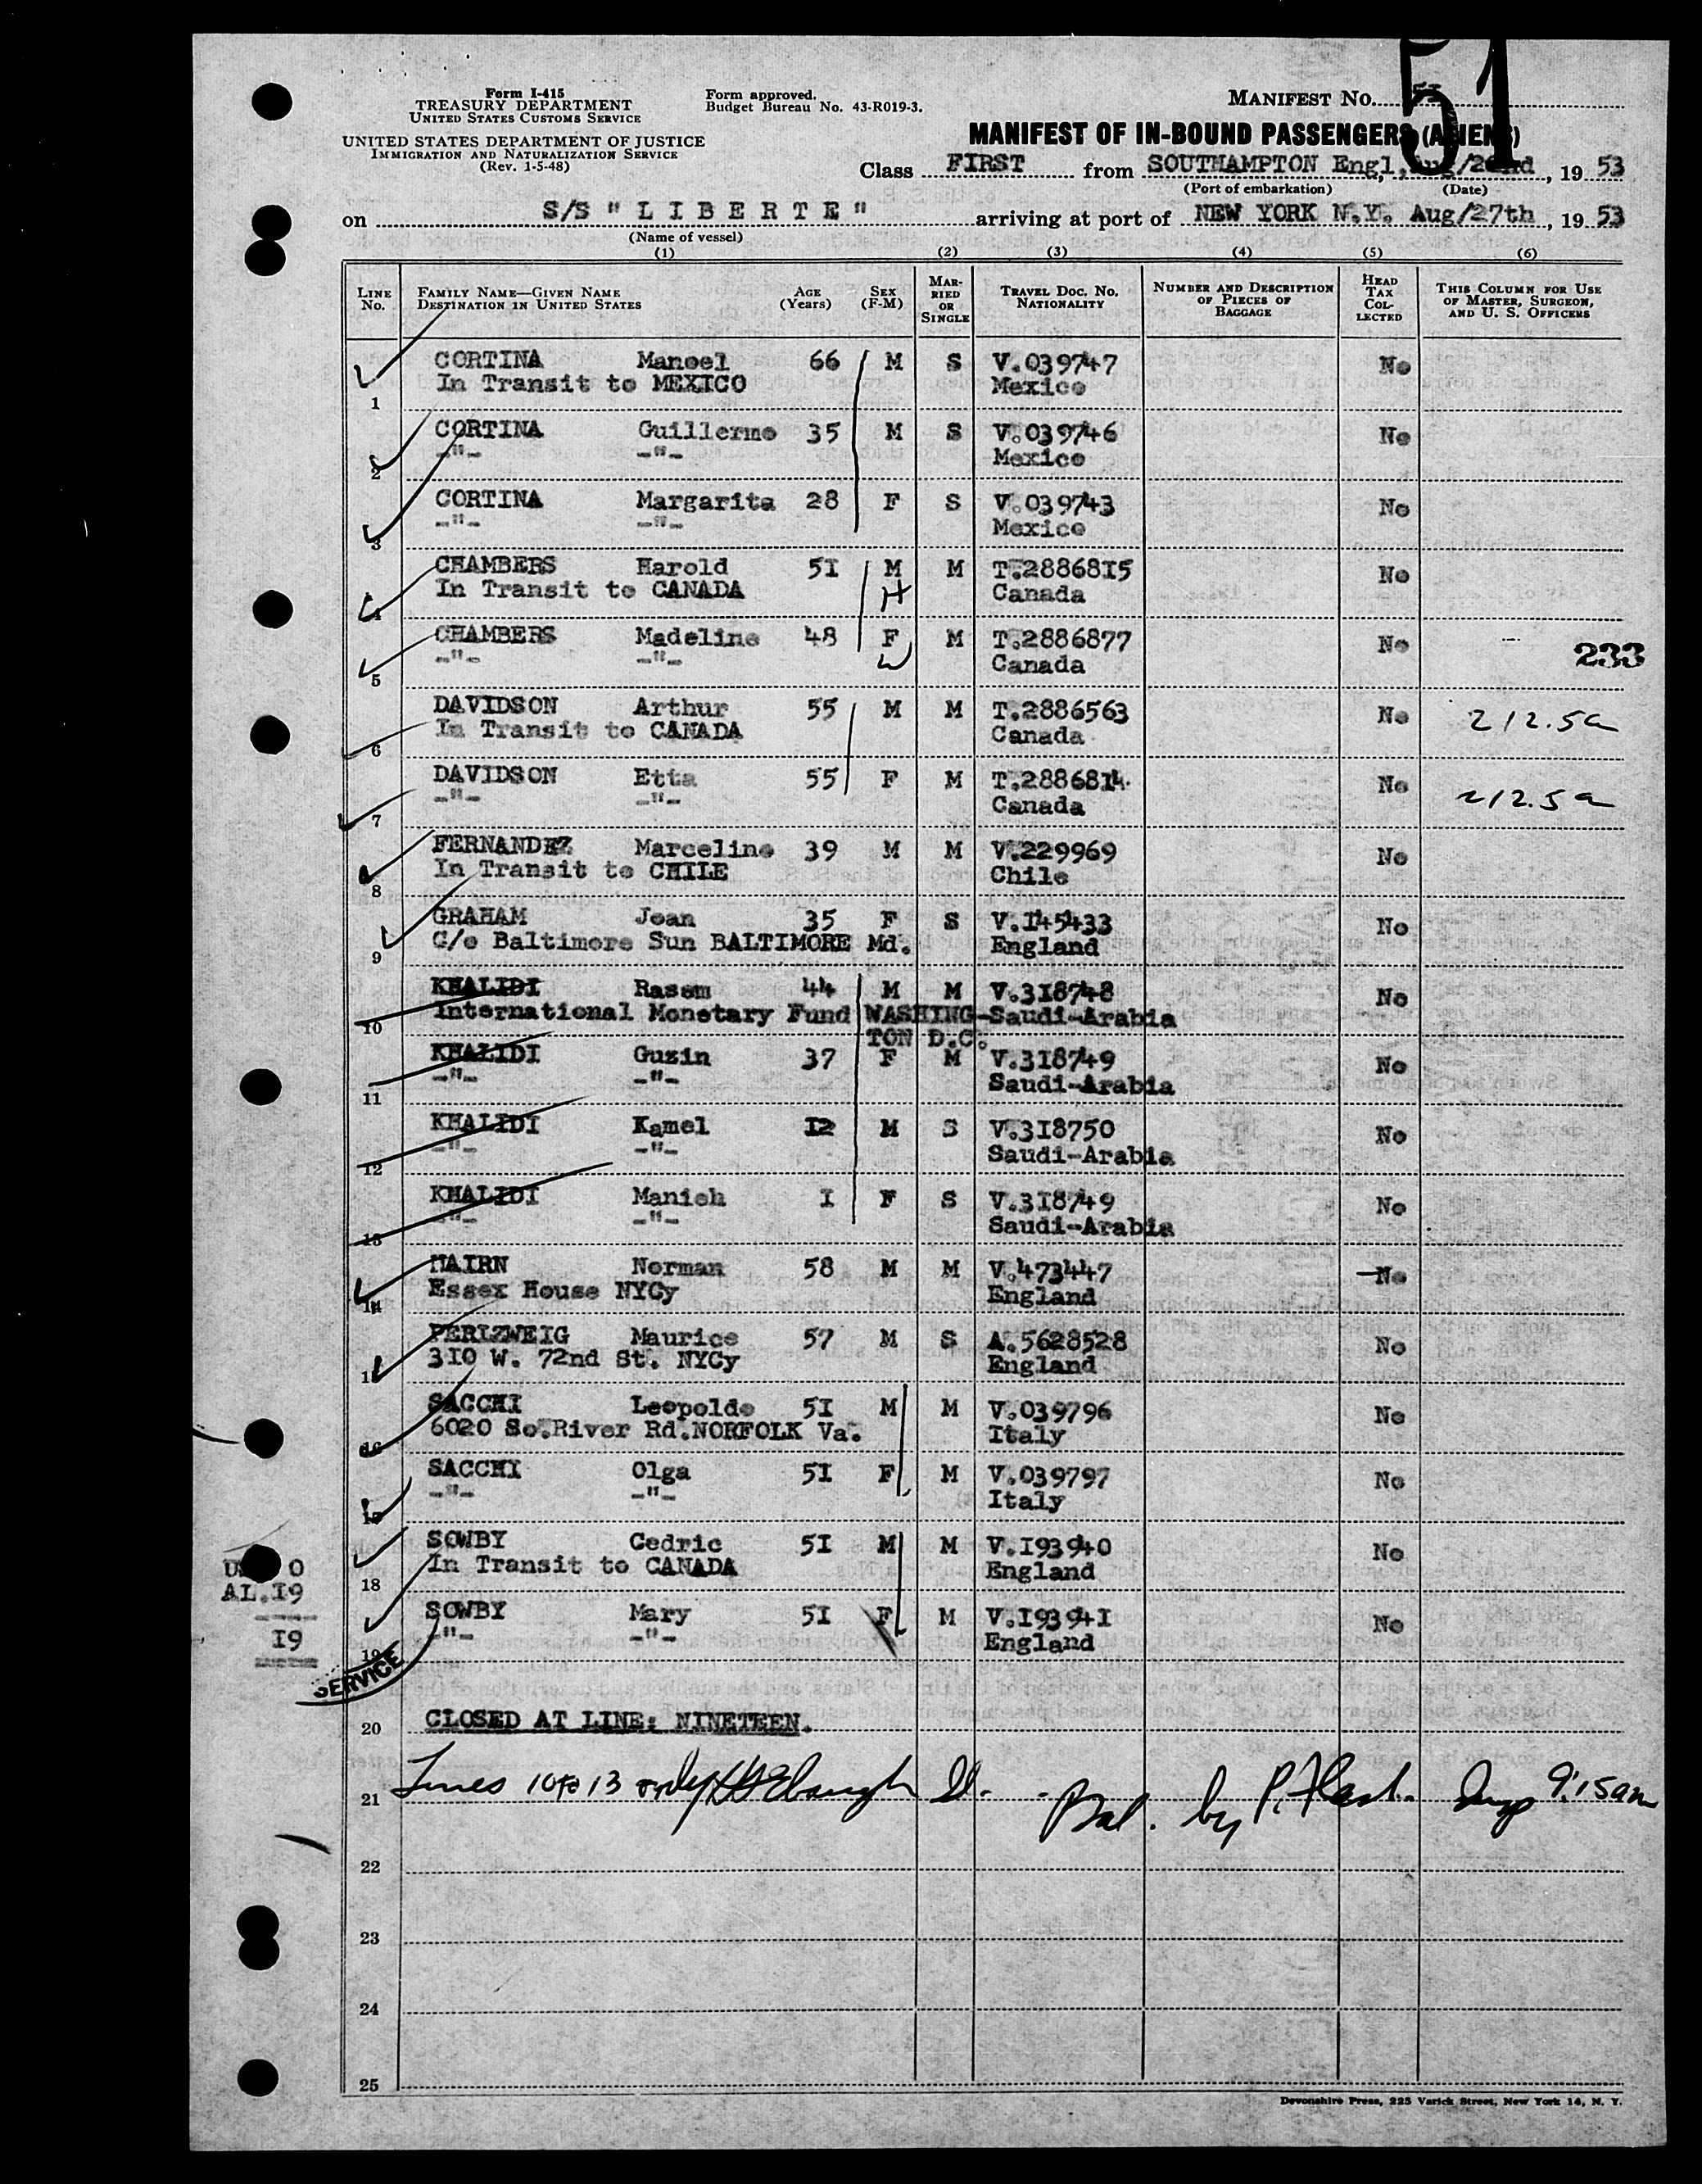 51
Form I-415
TREASURY DEPARTMENT
UNITED STATES CUSTOMS SERVICE
UNITED STATES DEPARTMENT OF JUSTICE
IMMIGRATION AND NATURALIZATION SERVICE
(Rev. 1-5-48)
Form approved.
Budget Bureau No. 43-R019-3.
MANIFEST NO.
MANIFEST OF IN-BOUND PASSENGERS (ALIENS)
Class FIRST from SOUTHAMPTON Engl, Aug/22nd, 19 53
(Port of embarkation) (Date)
on S/S "LIBERTE" arriving at port of NEW YORK N.Y. Aug/27th, 19 53
(Name of vessel)
(1) (2) (3) (4) (5) (6)
LINE NO. FAMILY NAME—GIVEN NAME DESTINATION IN UNITED STATES AGE (Years) SEX (F-M) MARRIED OR SINGLE TRAVEL DOC. NO. NATIONALITY NUMBER AND DESCRIPTION OF PIECES OF BAGGAGE HEAD TAX COLLECTED THIS COLUMN FOR USE OF MASTER, SURGEON, AND U. S. OFFICERS
1 CORTINA Manoel 66 M S V.039747 No
In Transit to MEXICO Mexico
2 CORTINA Guillermo 35 M S V.039746 No
-"- -"- Mexico
3 CORTINA Margarita 28 F S V.039743 No
-"- -"- Mexico
4 CHAMBERS Harold 51 M M T.2886815 No
In Transit to CANADA H Canada
5 CHAMBERS Madeline 48 F M T.2886877 No 233
-"- -"- W Canada
6 DAVIDSON Arthur 55 M M T.2886563 No 212.5a
In Transit to CANADA Canada
7 DAVIDSON Etta 55 F M T.2886814 No 212.5a
-"- -"- Canada
8 FERNANDEZ Marcelino 39 M M V.229969 No
In Transit to CHILE Chile
9 GRAHAM Joan 35 F S V.I45433 No
C/o Baltimore Sun BALTIMORE Md. England
10 KHALIDI Rasem 44 M M V.3I8748 No
International Monetary Fund WASHING- Saudi-Arabia
TON D.C.
11 KHALIDI Guzin 37 F M V.3I8749 No
-"- -"- Saudi-Arabia
12 KHALIDI Kamel I2 M S V.3I8750 No
-"- -"- Saudi-Arabia
13 KHALIDI Manieh I F S V.3I8749 No
-"- -"- Saudi-Arabia
14 NAIRN Norman 58 M M V.473447 No
Essex House NYCy England
15 PERLZWEIG Maurice 57 M S A.5628528 No
3I0 W. 72nd St. NYCy England
16 SACCHI Leopoldo 5I M M V.039796 No
6020 So.River Rd.NORFOLK Va. Italy
17 SACCHI Olga 5I F M V.039797 No
-"- -"- Italy
18 SOWBY Cedric 5I M M V.I93940 No
In Transit to CANADA England
19 SOWBY Mary 5I F M V.I93941 No
-"- -"- England
0
AL.I9
I9
SERVICE
20 CLOSED AT LINE: NINETEEN.
21 Lines 10 to 13 only Bal. by P. Insp 9:15am
22
23
24
25
Devonshire Press, 225 Varick Street, New York 14, N. Y.